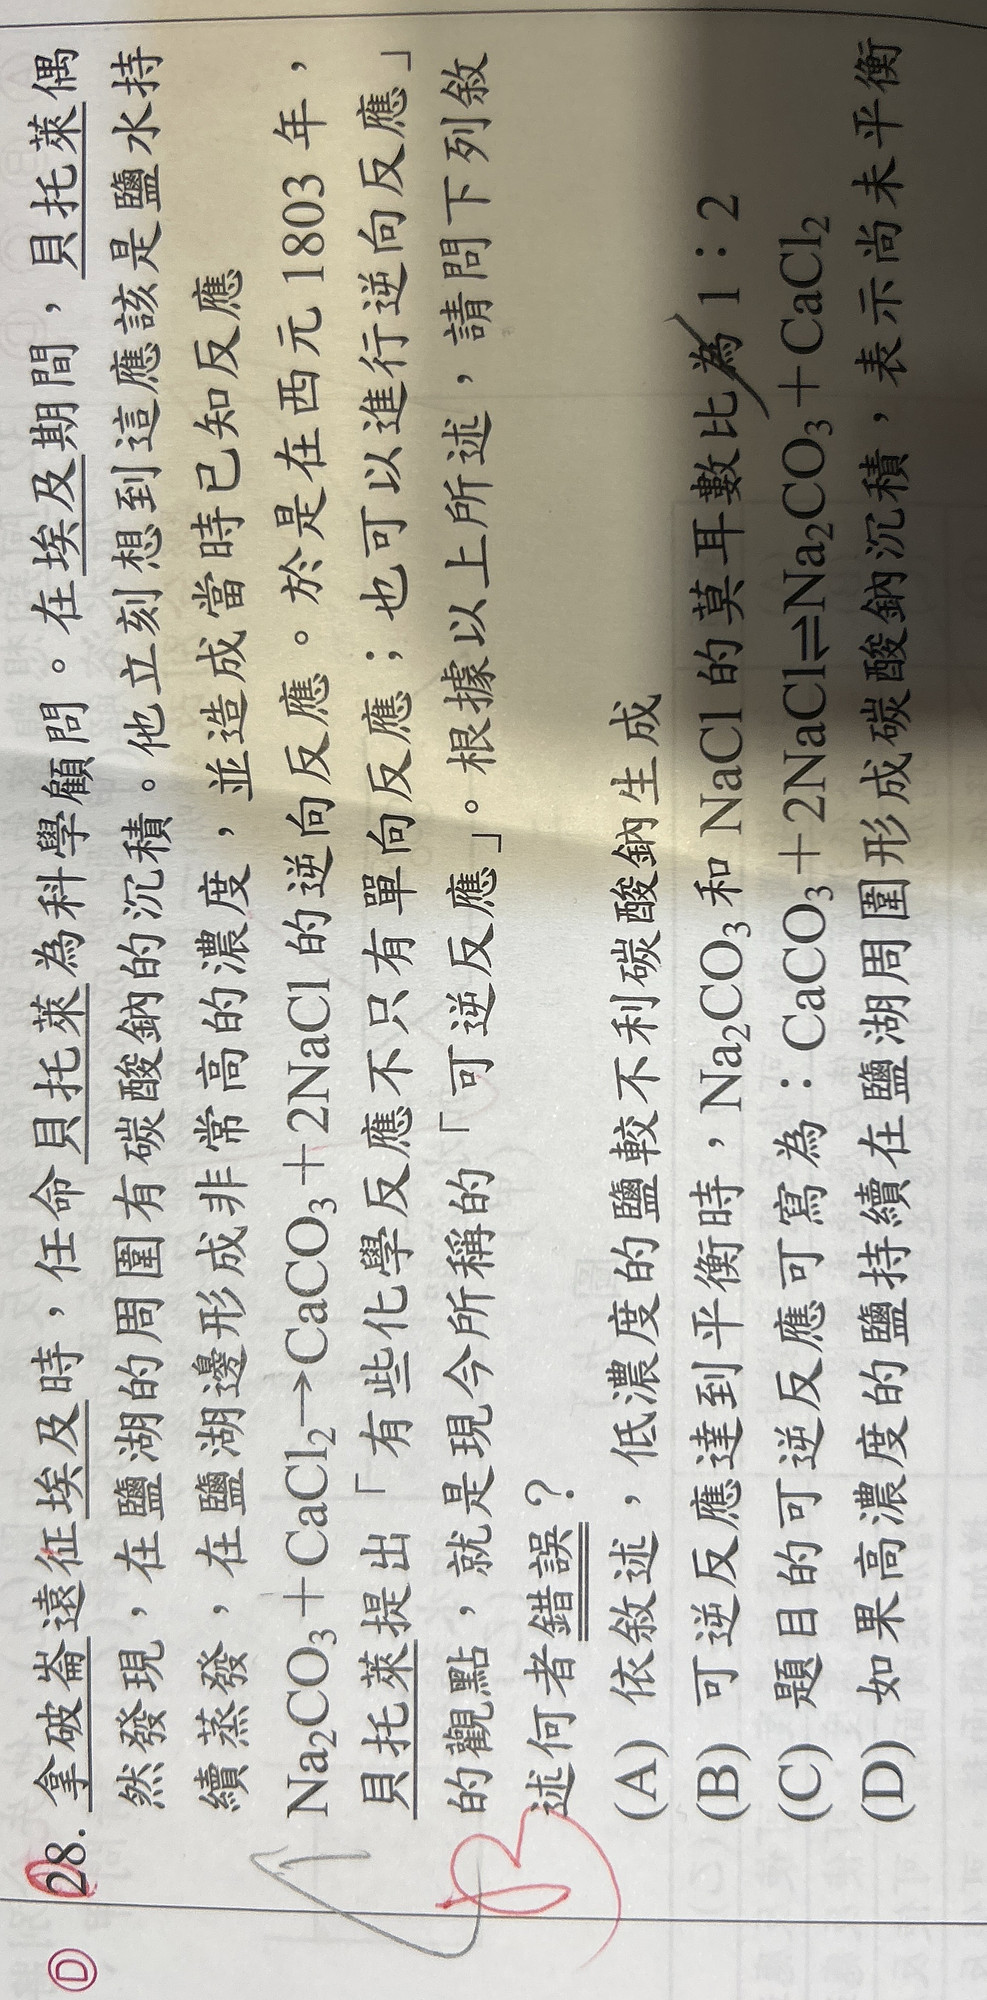 Ⓓ 28. 拿破崙遠征埃及時，任命貝托萊為科學顧問。在埃及期間，貝托萊偶
然發現，在鹽湖的周圍有碳酸鈉的沉積。他立刻想到這應該是鹽水持
續蒸發，在鹽湖邊形成非常高的濃度，並造成當時已知反應
Na₂CO₃＋CaCl₂→CaCO₃＋2NaCl 的逆向反應。於是在西元 1803 年，
貝托萊提出「有些化學反應不只有單向反應；也可以進行逆向反應」
的觀點，就是現今所稱的「可逆反應」。根據以上所述，請問下列敘
述何者錯誤？
(A) 依敘述，低濃度的鹽較不利碳酸鈉生成
(B) 可逆反應達到平衡時，Na₂CO₃ 和 NaCl 的莫耳數比為 1：2
(C) 題目的可逆反應可寫為：CaCO₃＋2NaCl⇌Na₂CO₃＋CaCl₂
(D) 如果高濃度的鹽持續在鹽湖周圍形成碳酸鈉沉積，表示尚未平衡
B